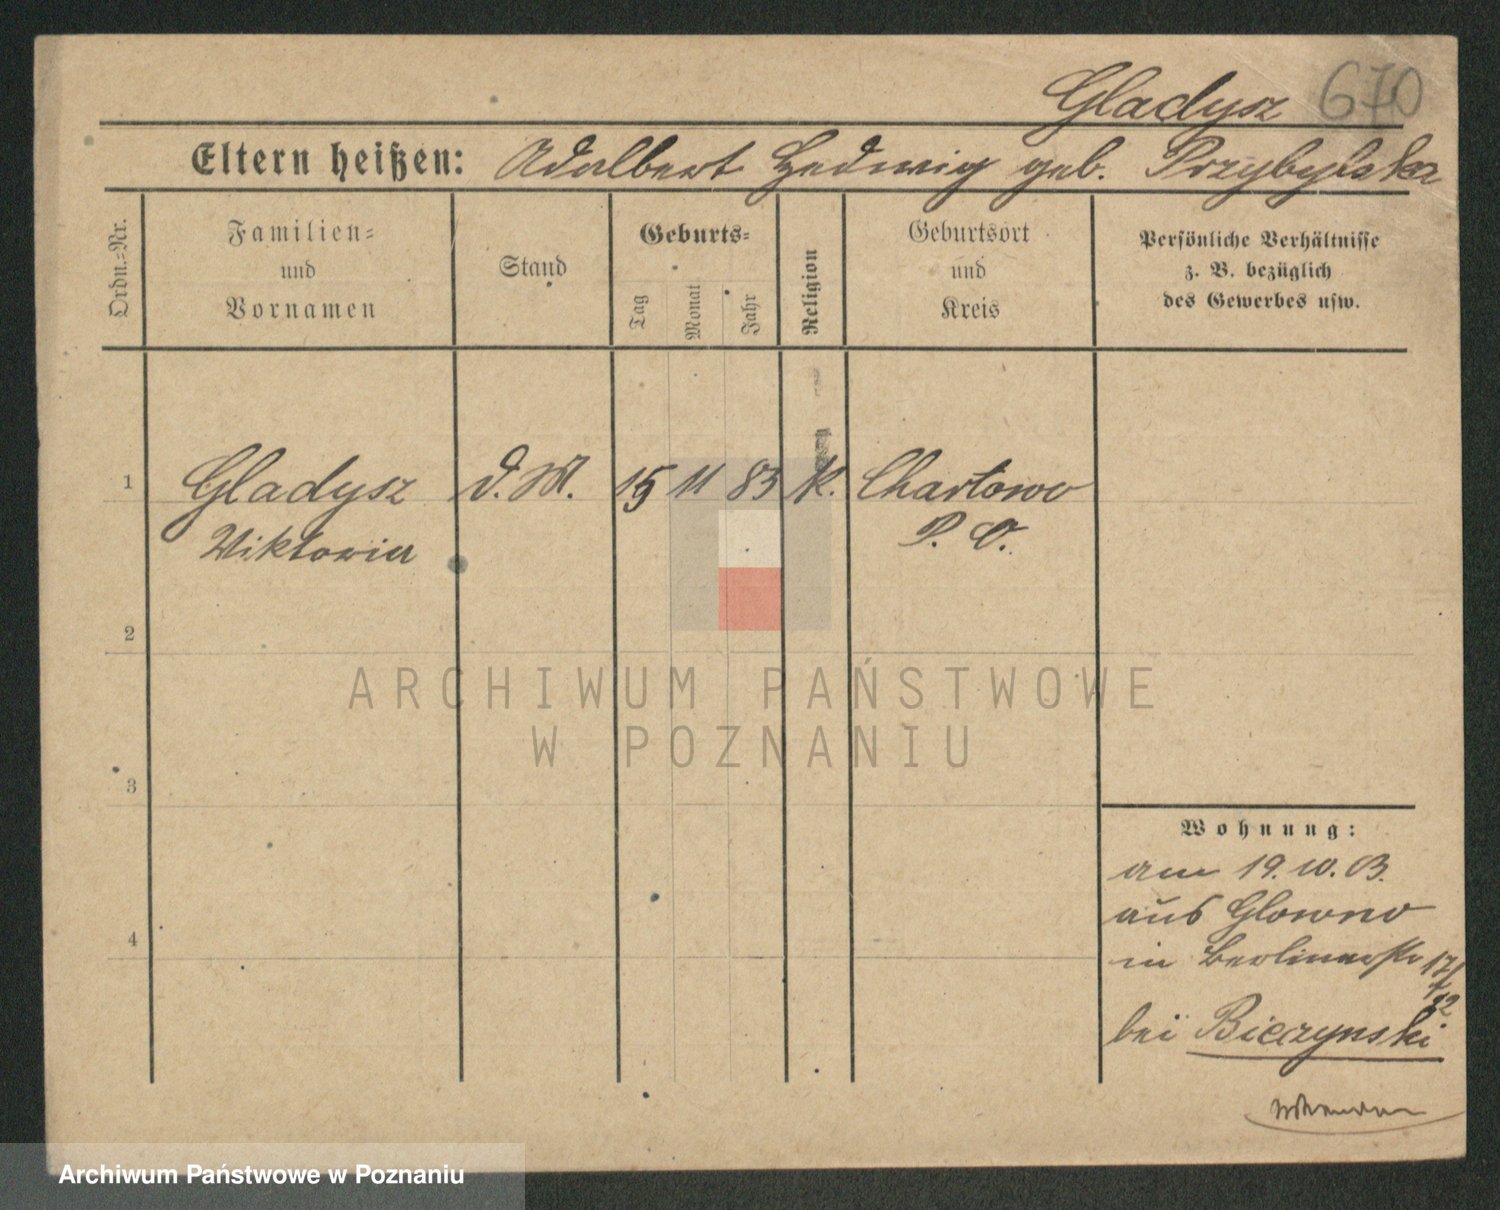 Gladysz 670
Eltern heißen: Adalbert Hedwig geb. Przybylska
Ordn.-Nr.
Familien-
und
Vornamen
Stand
Geburts-
Tag
Monat
Jahr
Religion
Geburtsort
und
Kreis
Persönliche Verhältnisse
z. B. bezüglich
des Gewerbes usw.
1 Gladysz d. M. 15 11 83 k. Chartowo
Wiktoria P. O.
2
3
4
Wohnung:
am 19.10.03.
aus Glowno
in Berlinerstr 17/
12
bei Bieczynski
ARCHIWUM PAŃSTWOWE
W POZNANIU
Archiwum Państwowe w Poznaniu